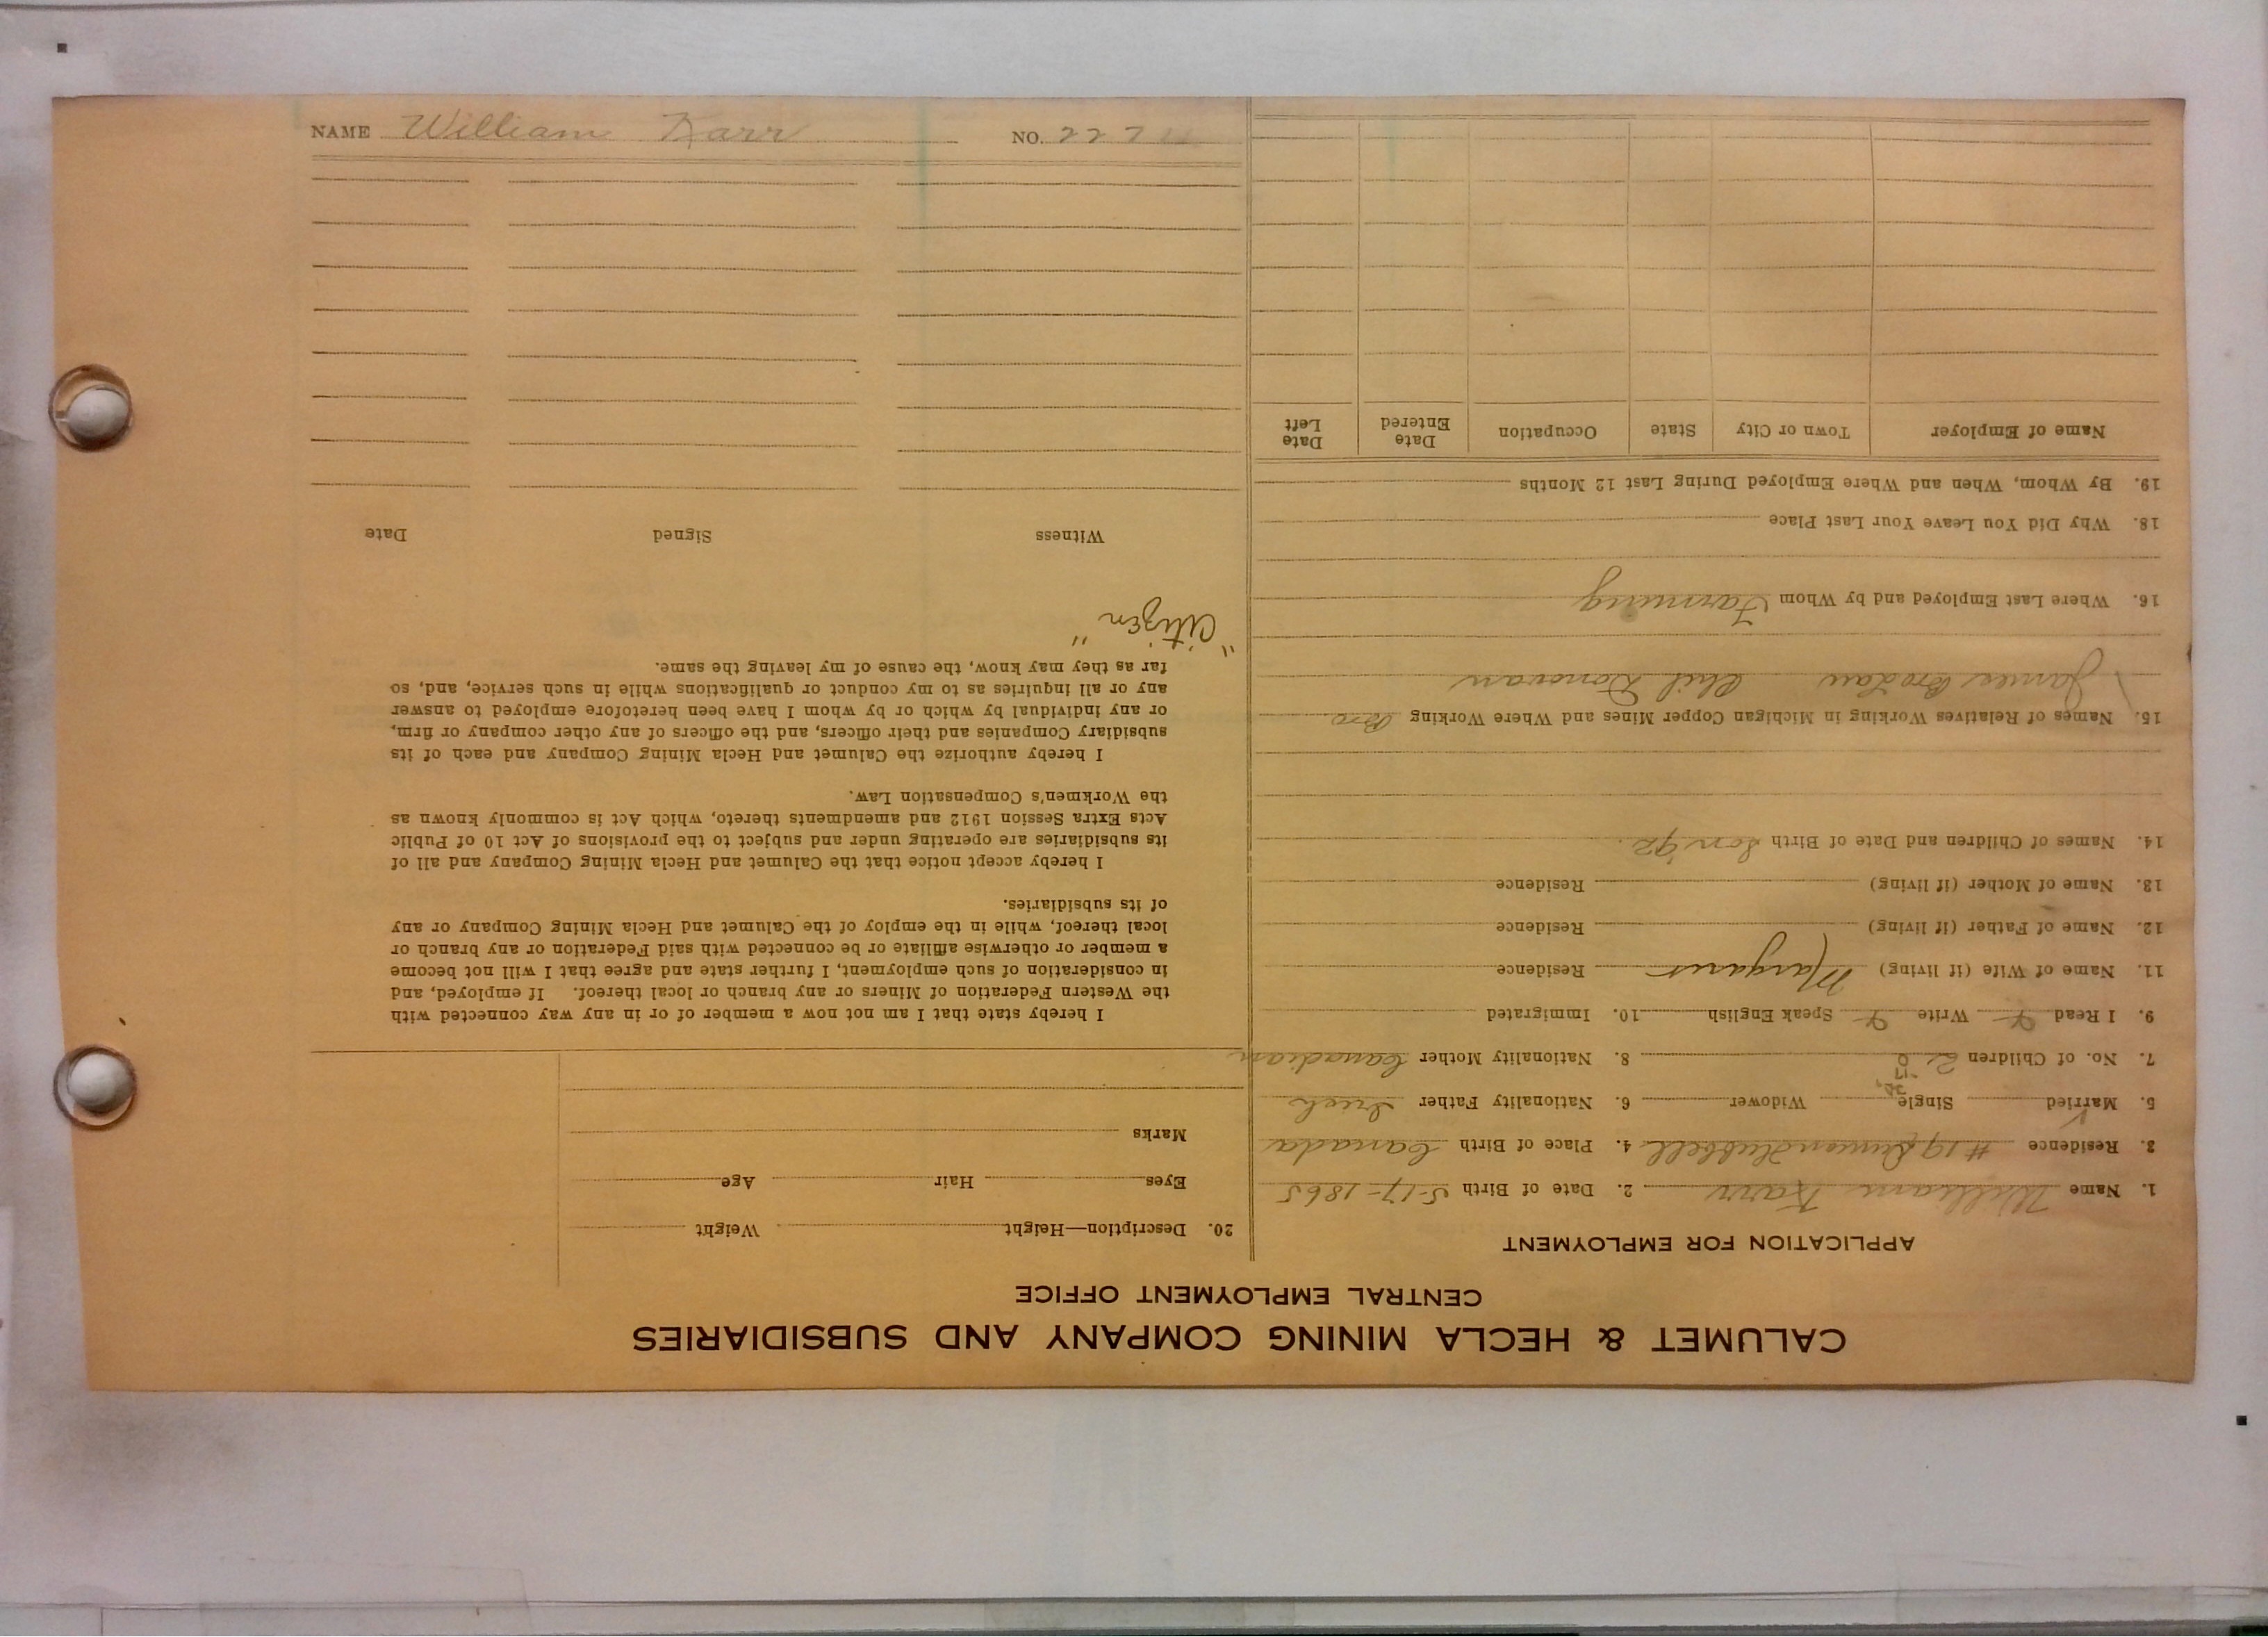 NAME William Karr NO. 227
CALUMET & HECLA MINING COMPANY AND SUBSIDIARIES
CENTRAL EMPLOYMENT OFFICE
APPLICATION FOR EMPLOYMENT
1. Name William Karr 2. Date of Birth 5-17-1865
3. Residence #19 Hubbell 4. Place of Birth Canada
5. Married Single Widower 6. Nationality Father Irish
7. No. of Children 2 8. Nationality Mother Canadian
9. I Read Y Write Y Speak English 10. Immigrated
11. Name of Wife (if living) Margaret Residence
12. Name of Father (if living) Residence
13. Name of Mother (if living) Residence
14. Names of Children and Date of Birth Son 92.
15. Names of Relatives Working in Michigan Copper Mines and Where Working Bro
James Bro Law Phil Donovan
16. Where Last Employed and by Whom Farming
18. Why Did You Leave Your Last Place
19. By Whom, When and Where Employed During Last 12 Months
Name of Employer Town or City State Occupation Date Entered Date Left
20. Description—Height Weight
Eyes Hair Age
Marks
I hereby state that I am not now a member of or in any way connected with
the Western Federation of Miners or any branch or local thereof. If employed, and
in consideration of such employment, I further state and agree that I will not become
a member or otherwise affiliate or be connected with said Federation or any branch or
local thereof, while in the employ of the Calumet and Hecla Mining Company or any
of its subsidiaries.
I hereby accept notice that the Calumet and Hecla Mining Company and all of
its subsidiaries are operating under and subject to the provisions of Act 10 of Public
Acts Extra Session 1912 and amendments thereto, which Act is commonly known as
the Workmen's Compensation Law.
I hereby authorize the Calumet and Hecla Mining Company and each of its
subsidiary Companies and their officers, and the officers of any other company or firm,
or any individual by which or by whom I have been heretofore employed to answer
any or all inquiries as to my conduct or qualifications while in such service, and, so
far as they may know, the cause of my leaving the same.
"Citizen"
Witness Signed Date